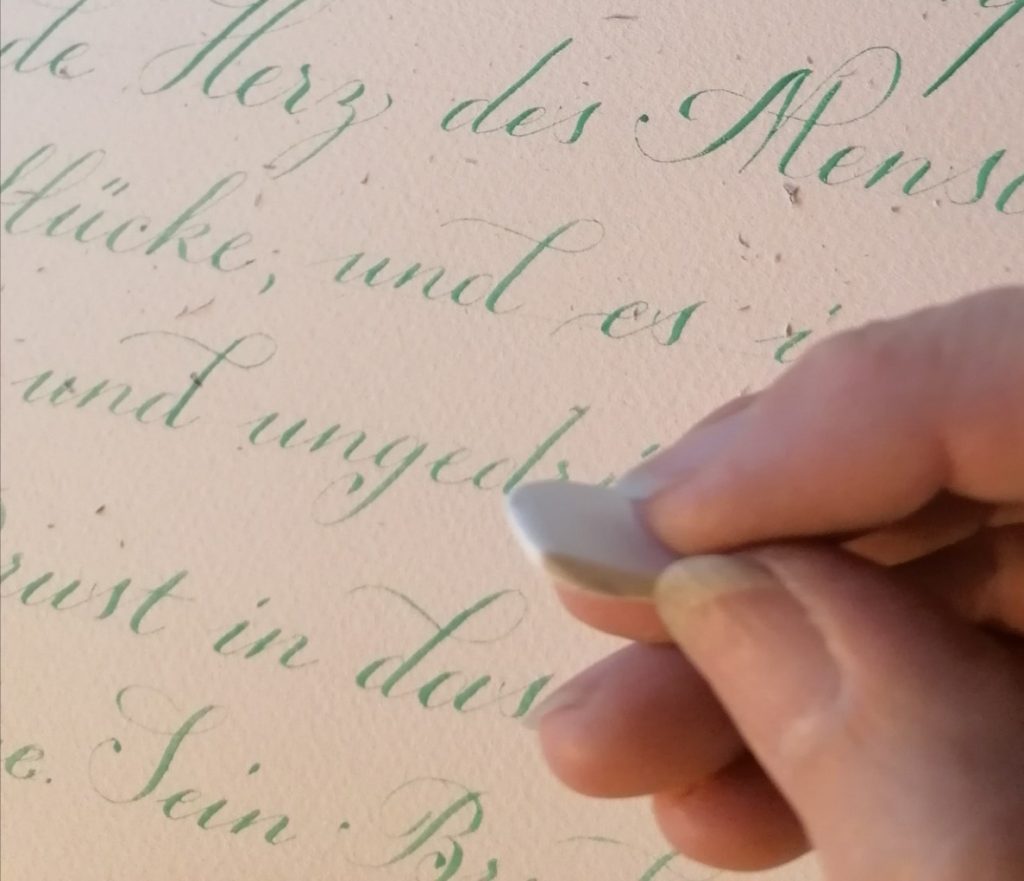 de Herz des Mensc
lücke, und es i
und ungedr
rust in das
e. Sein Br